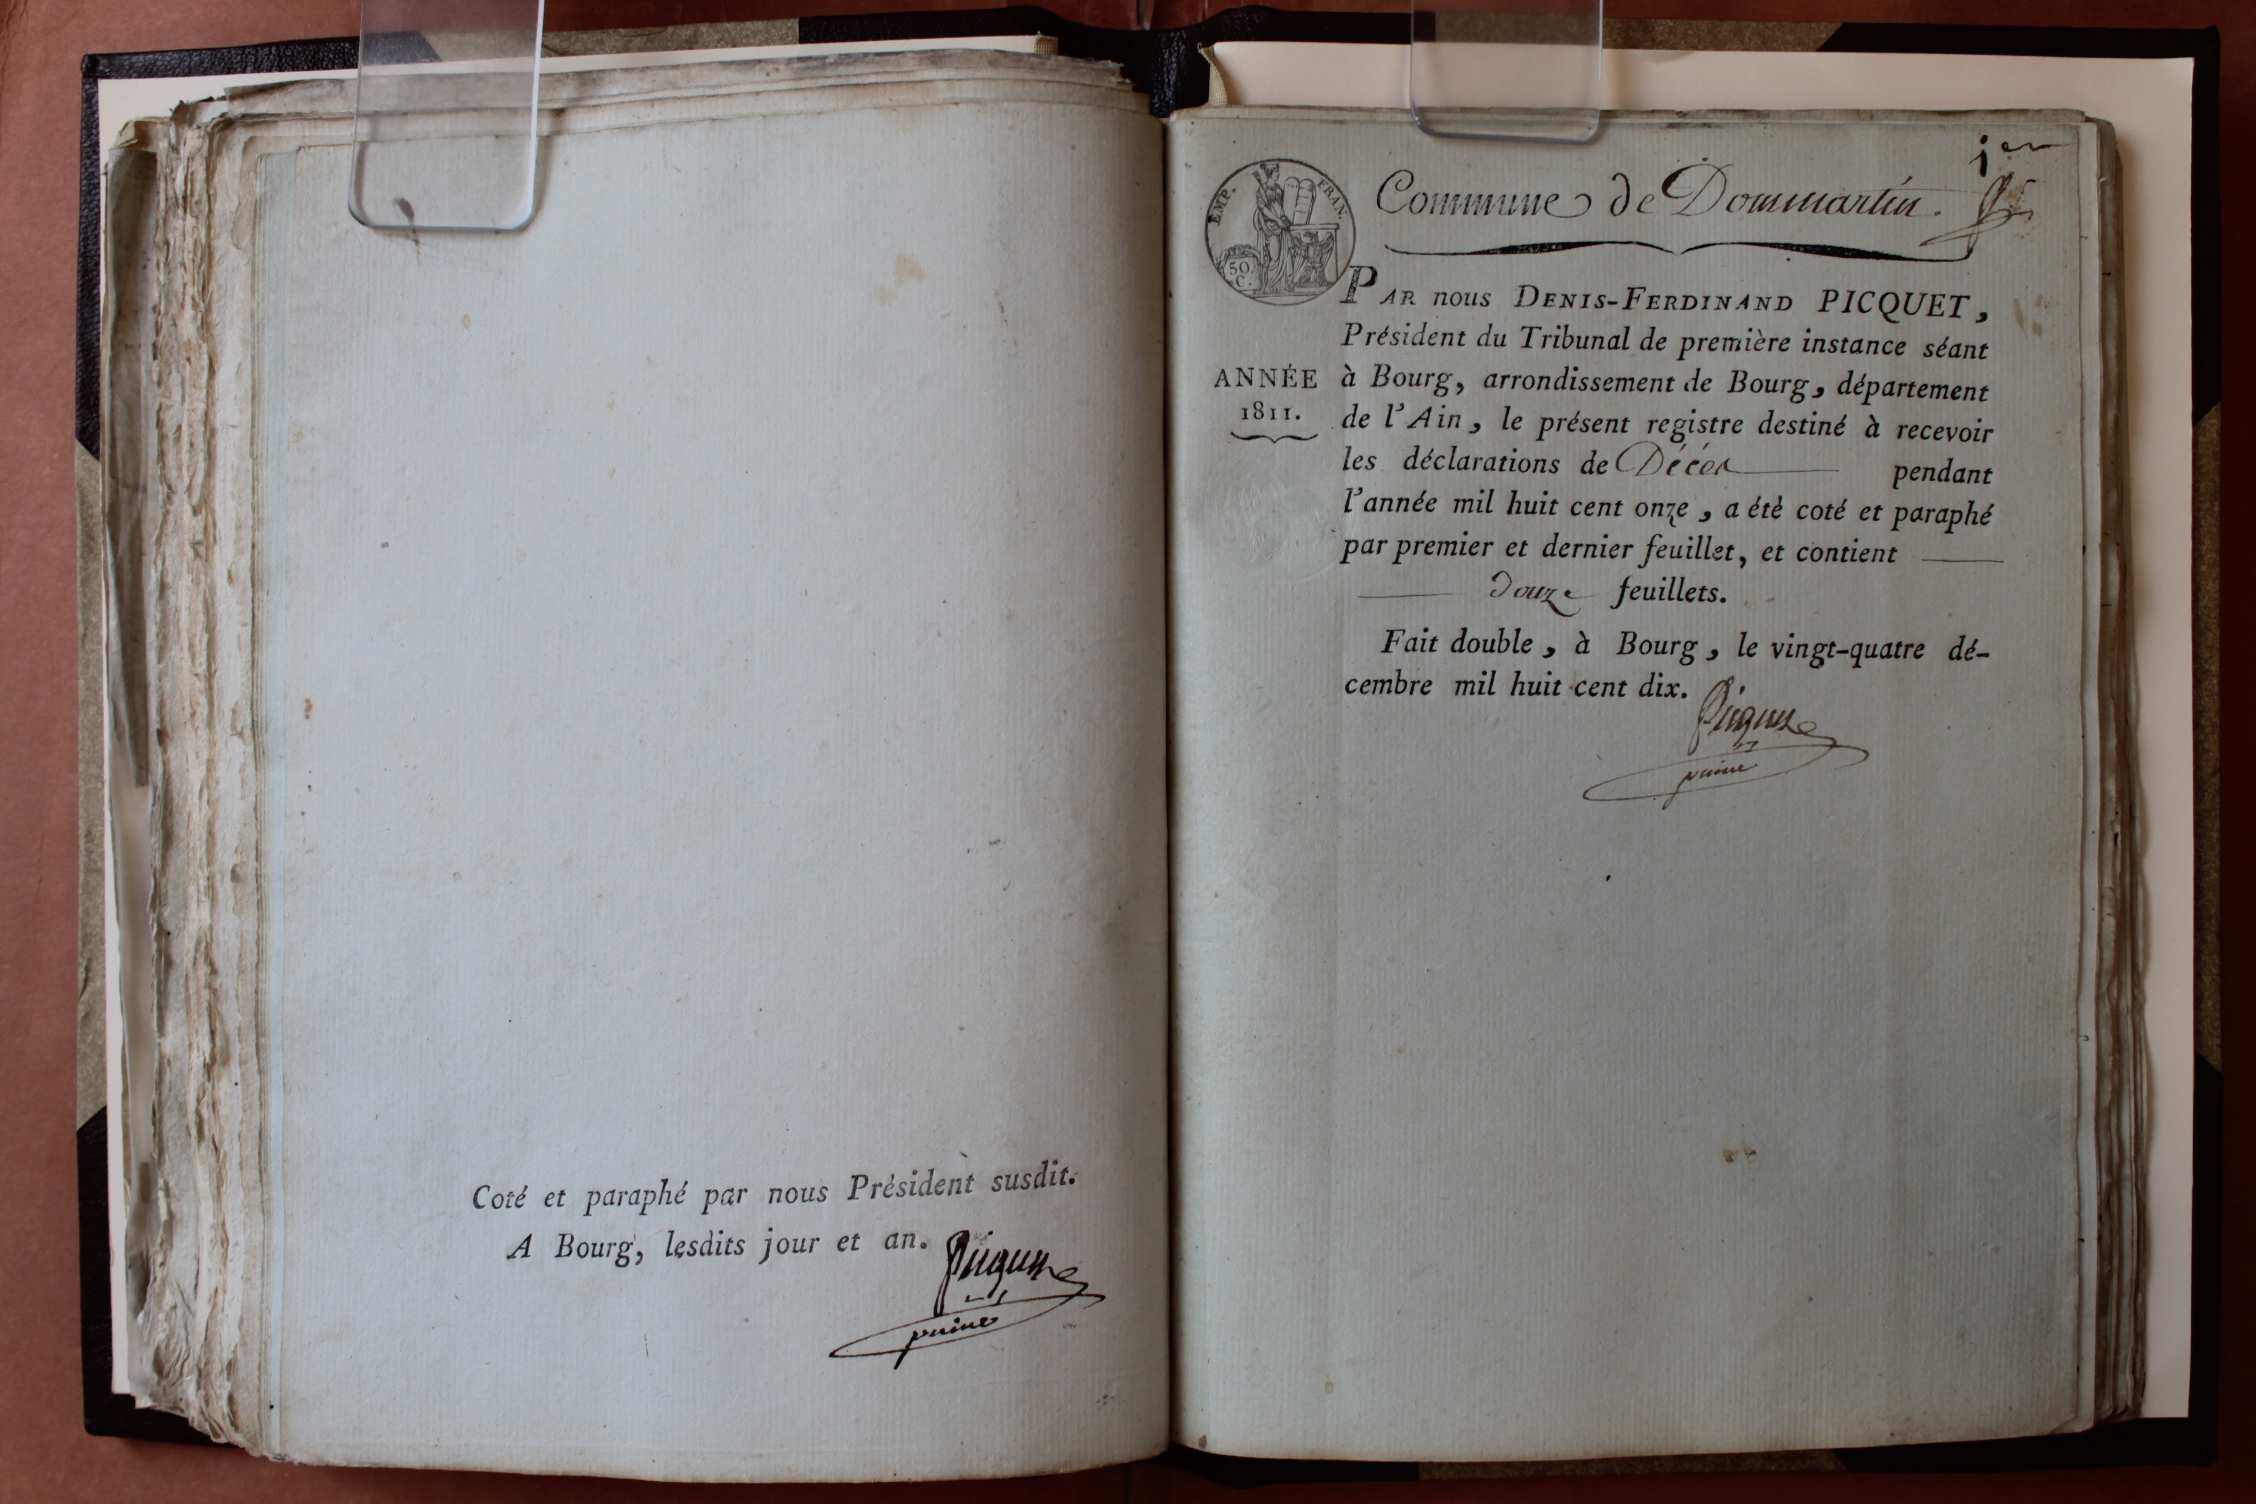 Coté et paraphé par nous Président susdit.
A Bourg, lesdits jour et an.
Picquet
1er
EMP. FRAN.
50 C.
Commune de Dommartin.
PAR nous DENIS-FERDINAND PICQUET,
Président du Tribunal de première instance séant
ANNÉE
1811.
à Bourg, arrondissement de Bourg, département
de l'Ain, le présent registre destiné à recevoir
les déclarations de Décès pendant
l'année mil huit cent onze, a été coté et paraphé
par premier et dernier feuillet, et contient
douze feuillets.
Fait double, à Bourg, le vingt-quatre dé-
cembre mil huit cent dix.
Picquet